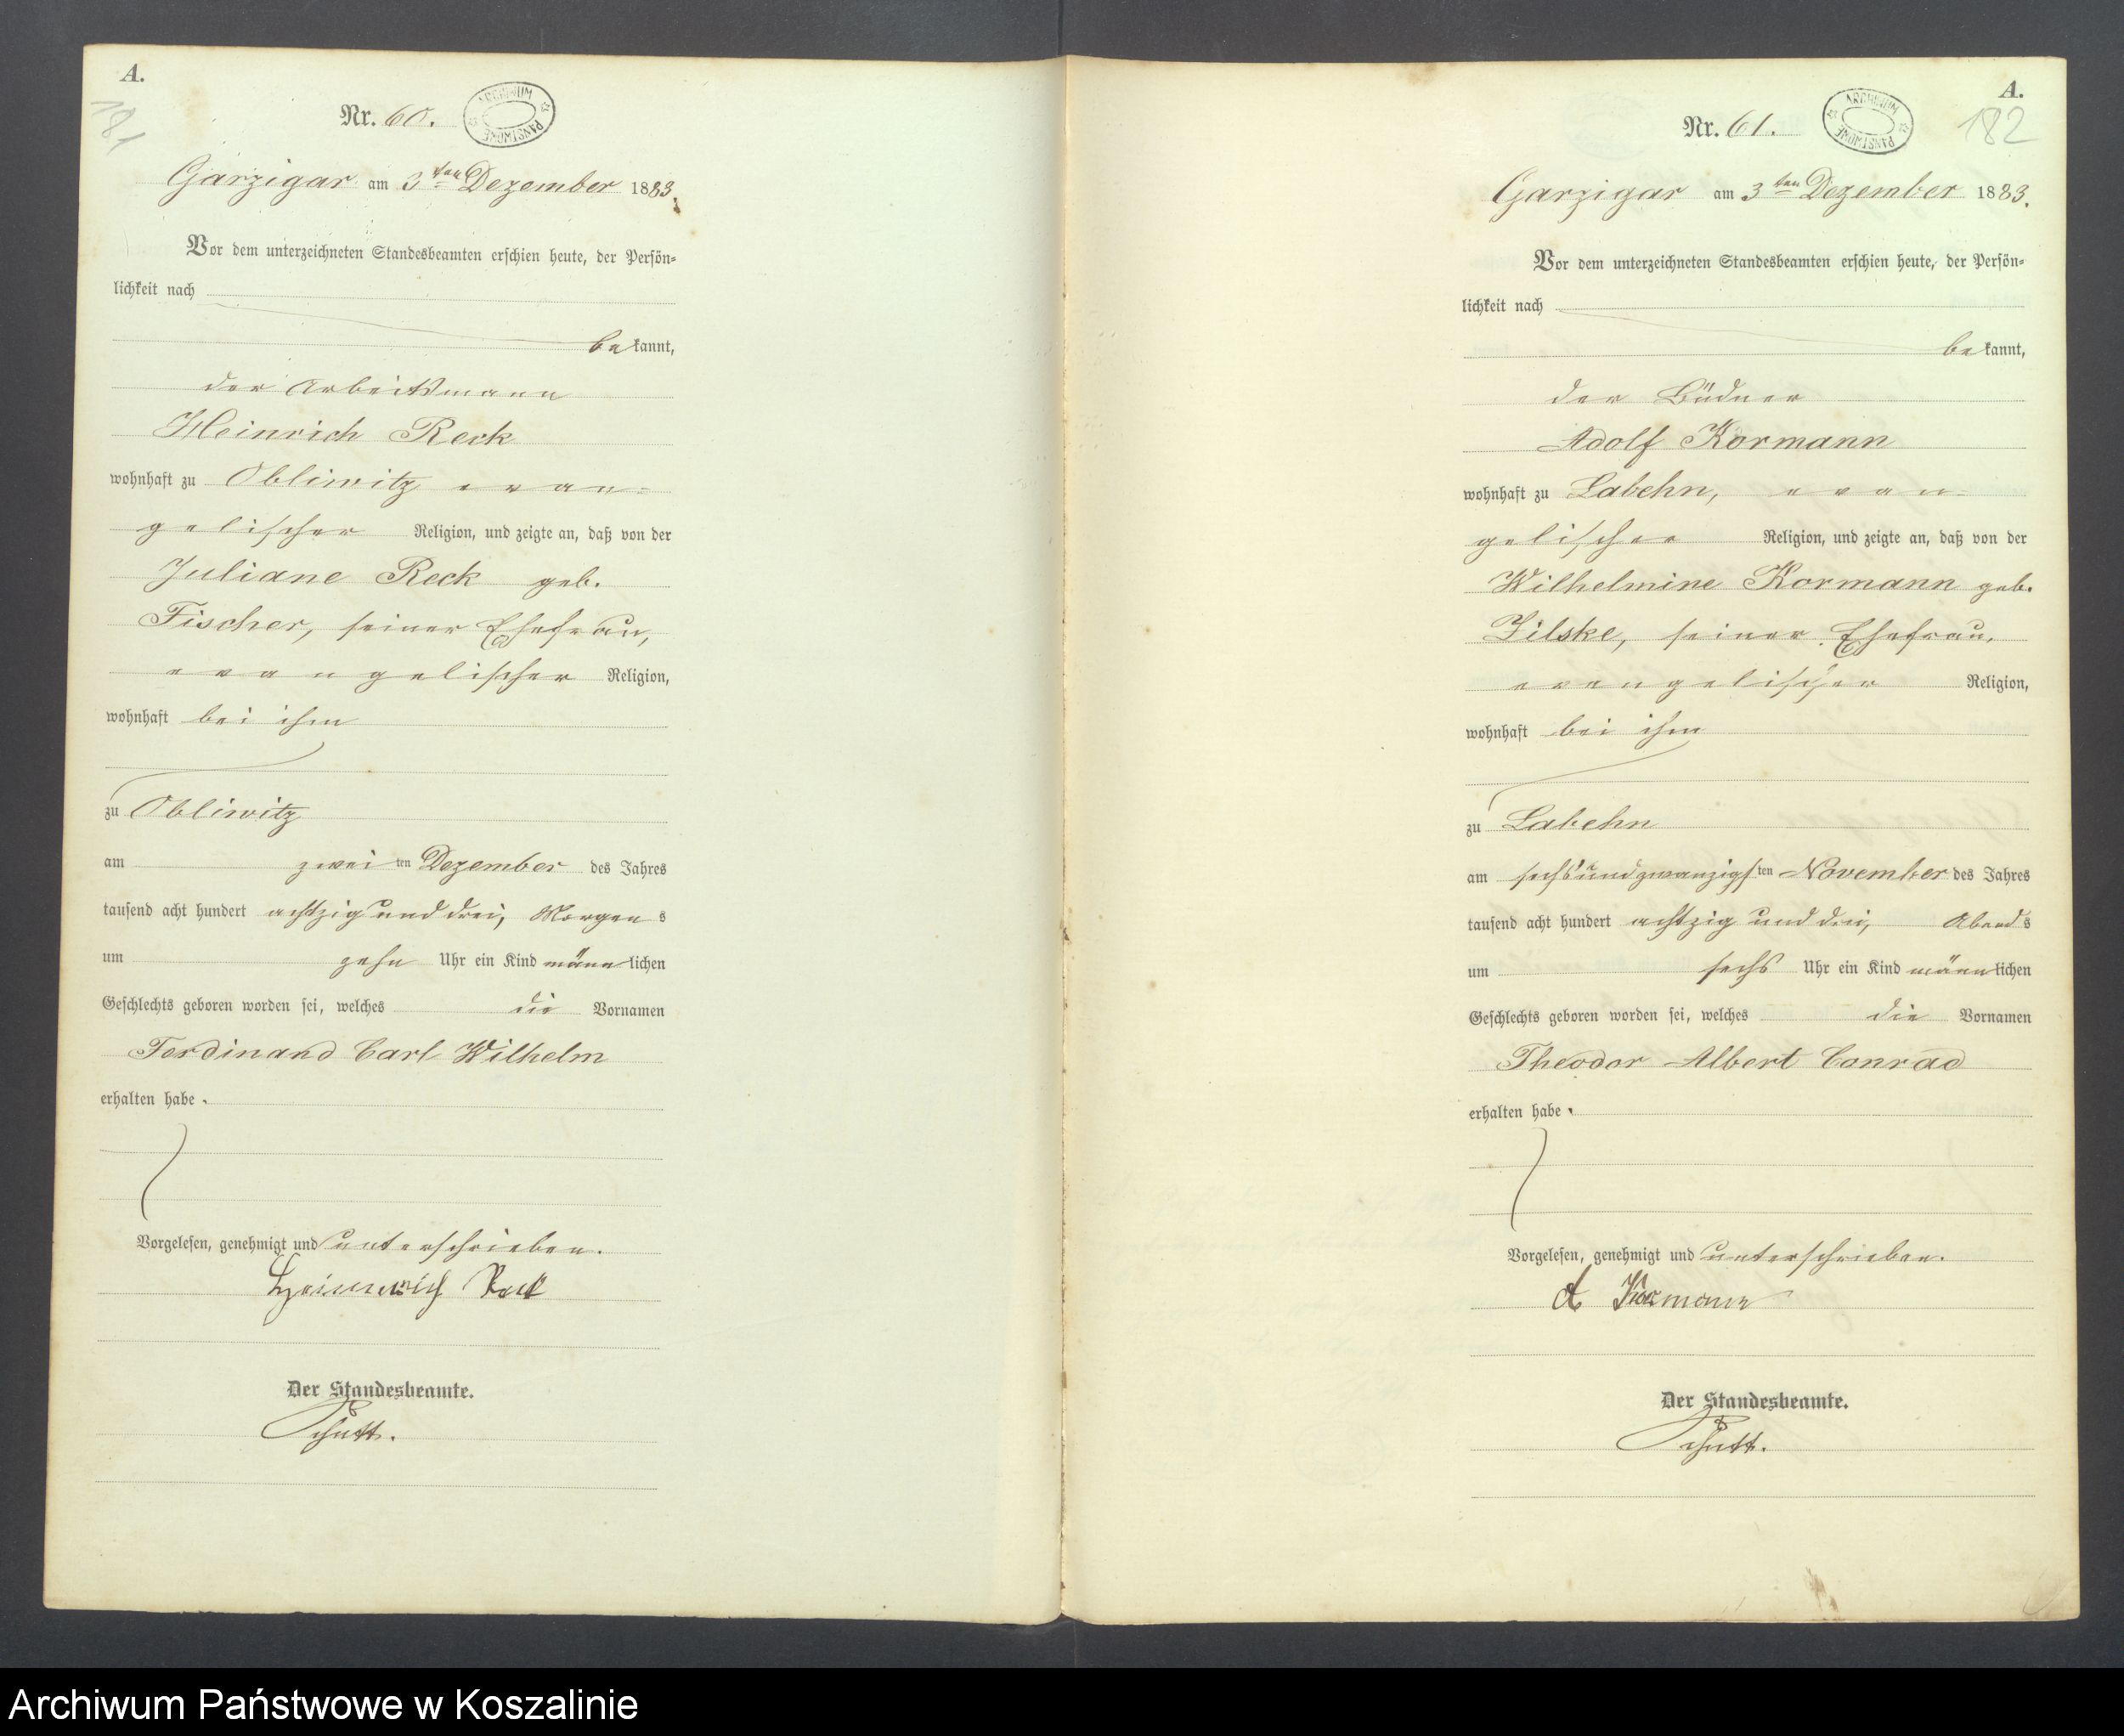 A.
181
Nr. 60.
ARCHIWUM PAŃSTWOWE
Garzigar am 3ten Dezember 1883.
Vor dem unterzeichneten Standesbeamten erschien heute, der Persön=
lichkeit nach
bekannt,
der Arbeitsmann
Heinrich Reck
wohnhaft zu Obliwitz evan=
gelischer Religion, und zeigte an, daß von der
Juliane Reck geb.
Fischer, seiner Ehefrau,
evangelischer Religion,
wohnhaft bei ihm
zu Obliwitz
am zweiten Dezember des Jahres
tausend acht hundert achtzig und drei, Morgens
um zehn Uhr ein Kind männlichen
Geschlechts geboren worden sei, welches die Vornamen
Ferdinand Carl Wilhelm
erhalten habe.
Vorgelesen, genehmigt und unterschrieben.
Heinrich Reck
Der Standesbeamte.
Schutt.
A.
182
Nr. 61.
ARCHIWUM PAŃSTWOWE
Garzigar am 3ten Dezember 1883.
Vor dem unterzeichneten Standesbeamten erschien heute, der Persön=
lichkeit nach
bekannt,
der Büdner
Adolf Kormann
wohnhaft zu Labehn, evan=
gelischer Religion, und zeigte an, daß von der
Wilhelmine Kormann geb.
Zilske, seiner Ehefrau,
evangelischer Religion,
wohnhaft bei ihm
zu Labehn
am sechsundzwanzigsten November des Jahres
tausend acht hundert achtzig und drei, Abends
um sechs Uhr ein Kind männlichen
Geschlechts geboren worden sei, welches die Vornamen
Theodor Albert Conrad
erhalten habe.
Vorgelesen, genehmigt und unterschrieben.
A Kormann
Der Standesbeamte.
Schutt.
Archiwum Państwowe w Koszalinie